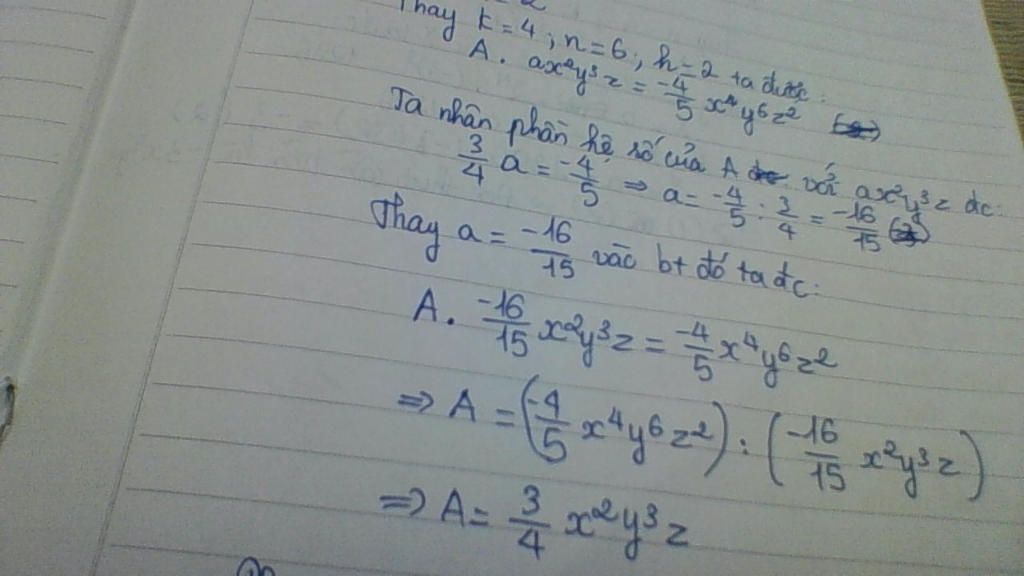 Thay k=4; n=6; h=2 ta được:
A. ax²y³z = -4/5 x⁴y⁶z²
Ta nhân phần hệ số của A với ax²y³z đc:
3/4 a = -4/5 ⇒ a = -4/5 : 3/4 = -16/15
Thay a = -16/15 vào bt đó ta đc:
A. -16/15 x²y³z = -4/5 x⁴y⁶z²
⇒ A = (-4/5 x⁴y⁶z²) : (-16/15 x²y³z)
⇒ A = 3/4 x²y³z